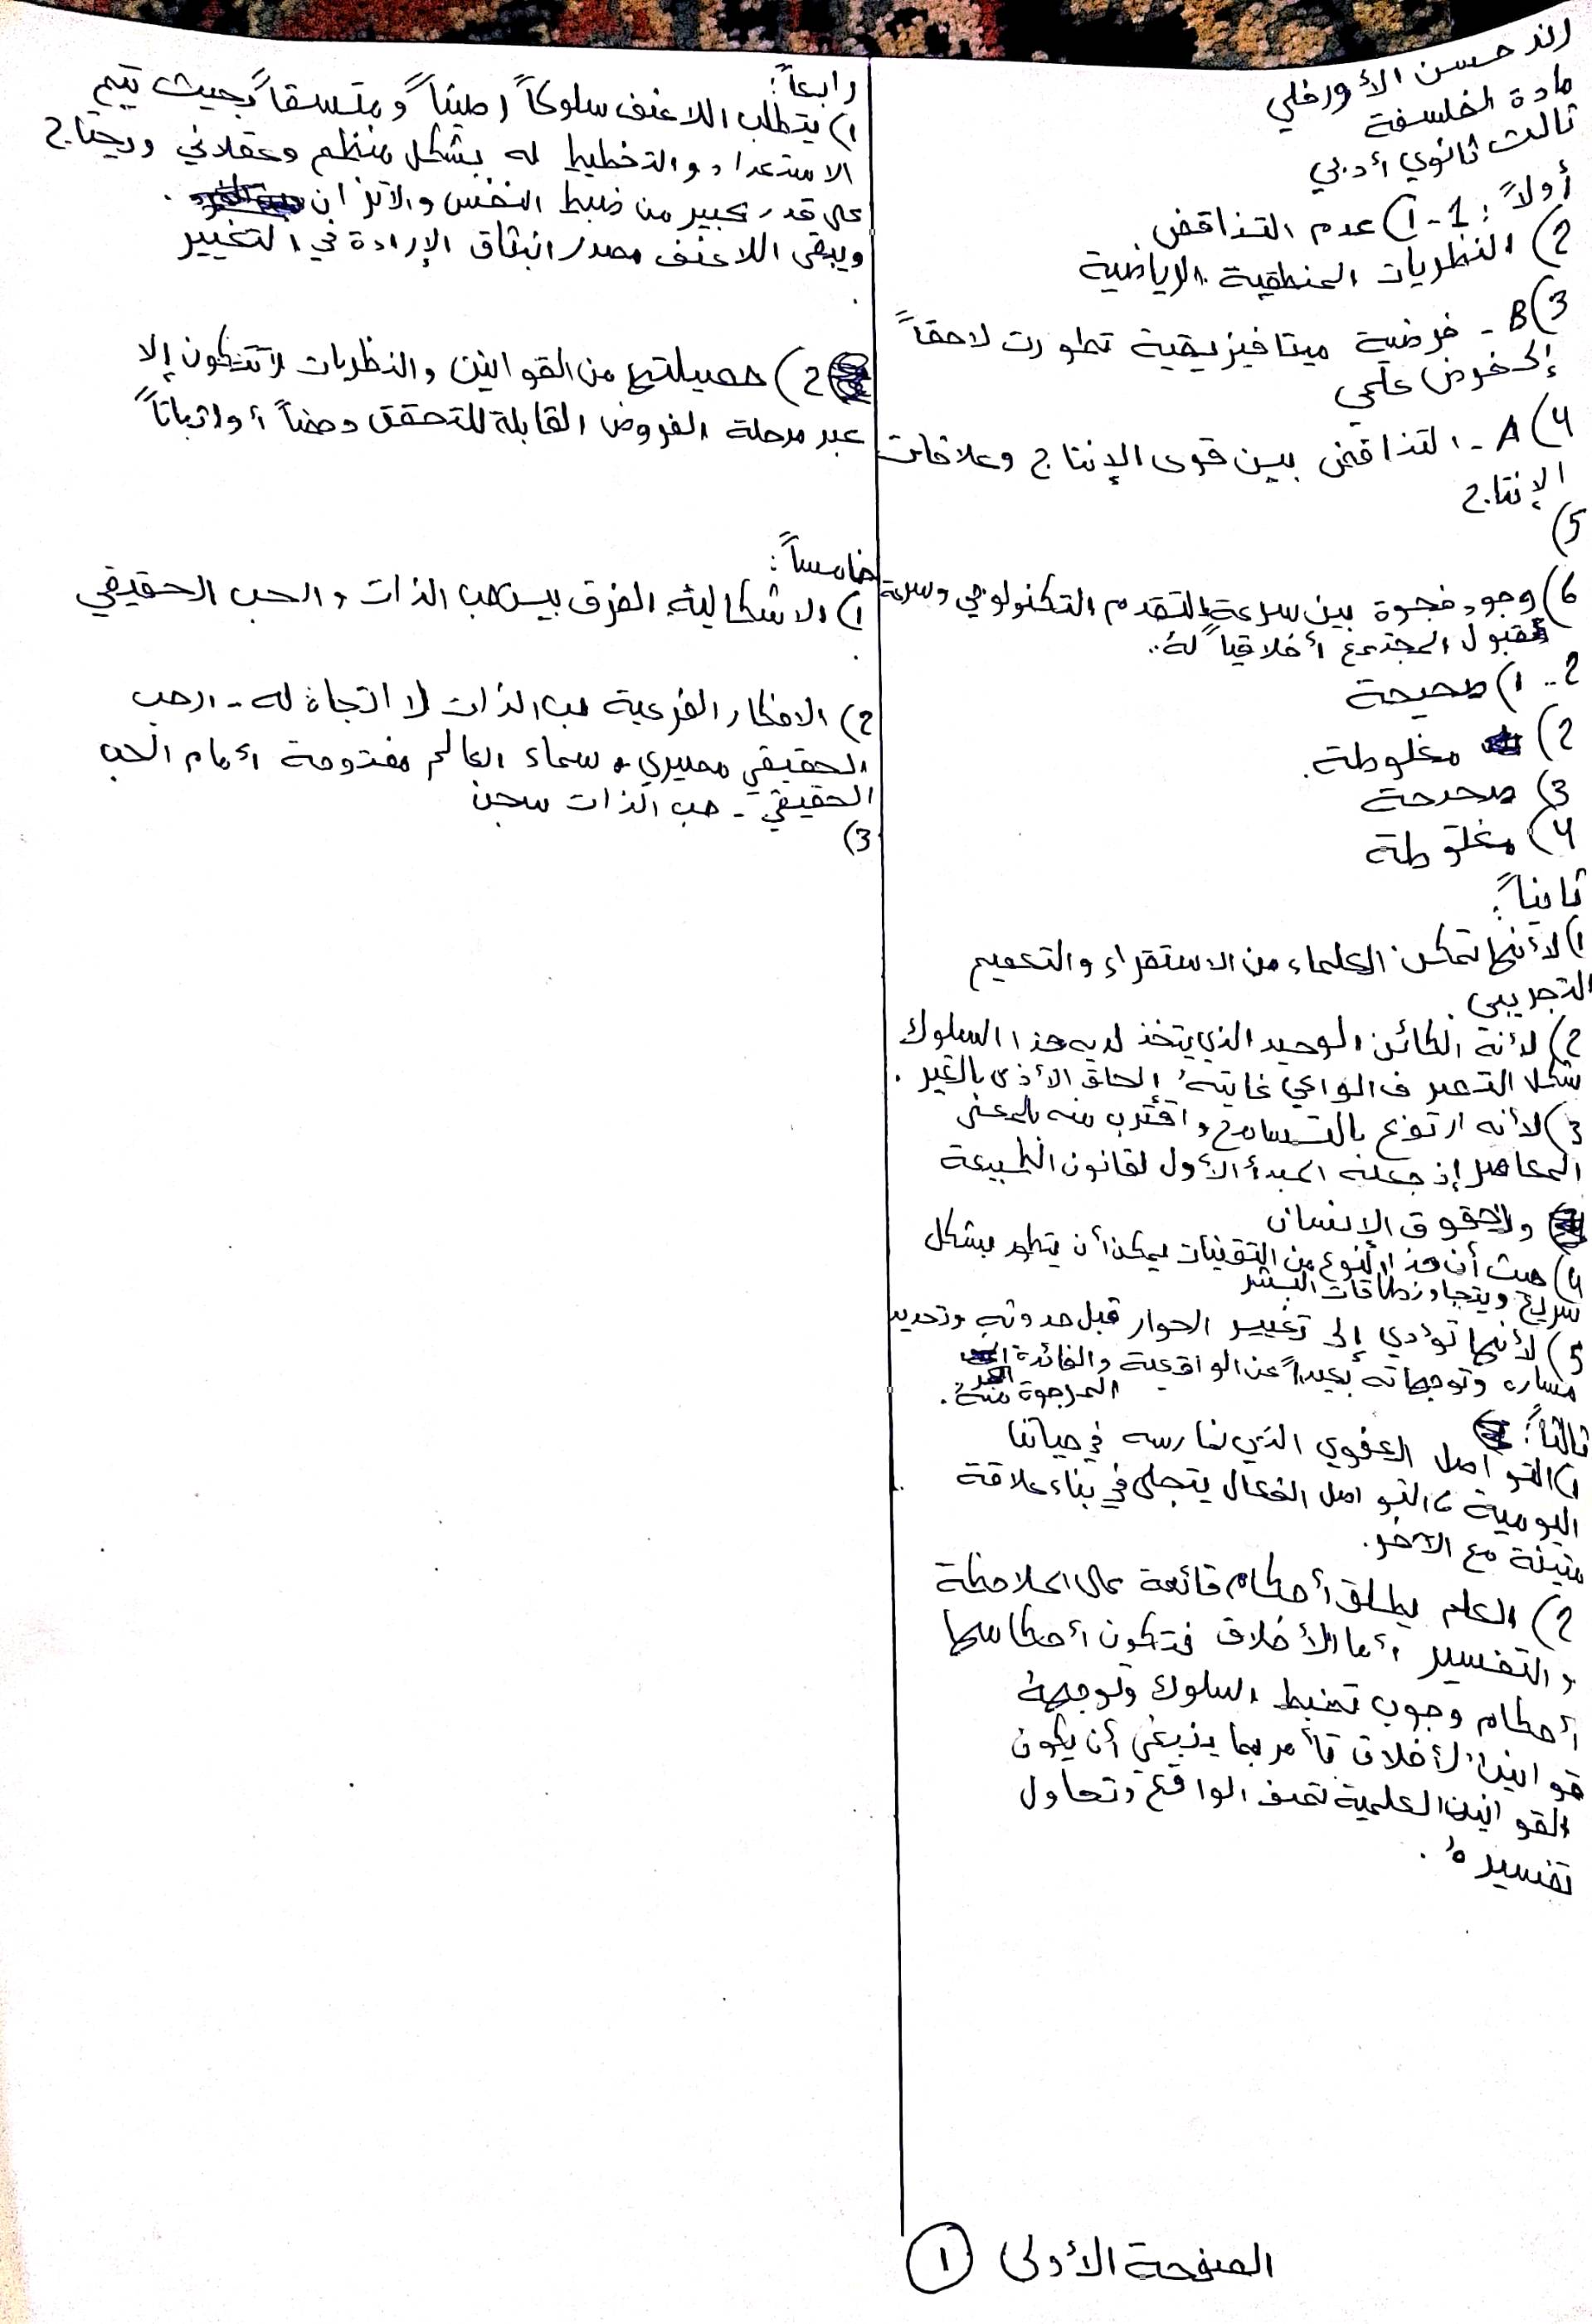 حسن الأورفلي
مادة الفلسفة
ثالث ثانوي أدبي
أولاً: 1- 1) عدم التناقض
2) النظريات المنطقية الرياضية
3) B - فرضية ميتافيزيقية تطورت لاحقاً
إلى فرض علمي
4) A - التناقض بين قوى الإنتاج وعلاقات
الإنتاج
5)
6) وجود فجوة بين سرعة التقدم التكنولوجي وسرعة
تقبول المجتمع أخلاقياً له..
2- 1) صحيحة
2) مغلوطة.
3) صحيحة
4) مغلوطة
ثانياً:
1) لأنها تمكن العلماء من الاستقراء والتعميم
التجريبي.
2) لأنه الكائن الوحيد الذي يتخذ لديه هذا السلوك
شكلا التصرف الواعي غايته إلحاق الأذى بالغير.
3) لأنه ارتفع بالتسامح واقترب منه بالمعنى
المعاصر إذ جعله المبدأ الأول لقانون الطبيعة
ولحقوق الإنسان
4) حيث أن هذا النوع من التقنيات يمكن أن يتطور بشكل
سريع ويتجاوز طاقات البشر
5) لأنها تؤدي إلى تغيير الحوار قبل حدوثه وتحديد
مساره وتوجهاته بعيداً عن الواقعية والفائدة
المرجوة منه.
ثالثاً:
1) التواصل العفوي الذي نمارسه في حياتنا
اليومية، التواصل الفعال يتجلى في بناء علاقة
متينة مع الآخر.
2) العلم يطلق أحكام قائمة على الملاحظة
والتفسير، أما الأخلاق فتكون أحكامها
أحكام وجوب تضبط السلوك وتوجهه
قوانين الأخلاق تأمر بما ينبغي أن يكون
القوانين العلمية تصف الواقع وتحاول
تفسيره.
رابعاً:
1) يتطلب اللاعنف سلوكاً رصيناً ومتسقاً بحيث يتم
الاستعداد والتخطيط له بشكل منظم وعقلاني ويحتاج
على قدر كبير من ضبط النفس والاتزان.
ويبقى اللاعنف مصدر انبثاق الإرادة في التغيير
.
2) حصيلتها من القوانين والنظريات لا تتكون إلا
عبر مرحلة الفروض القابلة للتحقق دحضاً أو إثباتاً
خامساً:
1) الاشكالية: الفرق بين حب الذات والحب الحقيقي
.
2) الافكار الفرعية حب الذات لا اتجاه له - الحب
الحقيقي مصيري، سماء العالم مفتوحة أمام الحب
الحقيقي - حب الذات سجن
3)
الصفحة الأولى ١